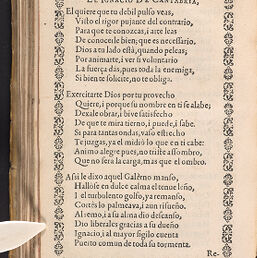 DE IGNACIO DE CANTABRIA,
El quiere que tu debil pulso veas,
Visto el rigor pujante del contrario,
Para que te conozcas, i arte leas
De conocele bien; que es necessario.
Dios a tu lado està, quando peleas;
Por animarte, i ver si voluntario
La fuerça pones, pues toda la enemiga,
Si bien te solicite, no te obliga.
Exercitarte Dios por tu provecho
Quiere, i porque su nombre en ti se alabe;
Dexale obrar, i bive satisfecho
De que te mira tierno, i puede, i sabe.
Si para tantas ondas, vaso estrecho
Te juzgas, ya el midiò lo que en ti cabe:
Animo alegre pues, no triste assombro,
Que no sera la carga, mas que el ombro.
Assi le dixo aquel Galerno manso,
Hallòse en dulce calma el tenue leño,
I el turbulento golfo, ya remanso,
Cortès lo palmeava, i aun risueño.
Al remo, i a su alma dio descanso,
Dio liberales gracias a su dueño
Ignacio, i al mayor sigilo cuenta
Puerto comun de toda su tormenta.
Re-